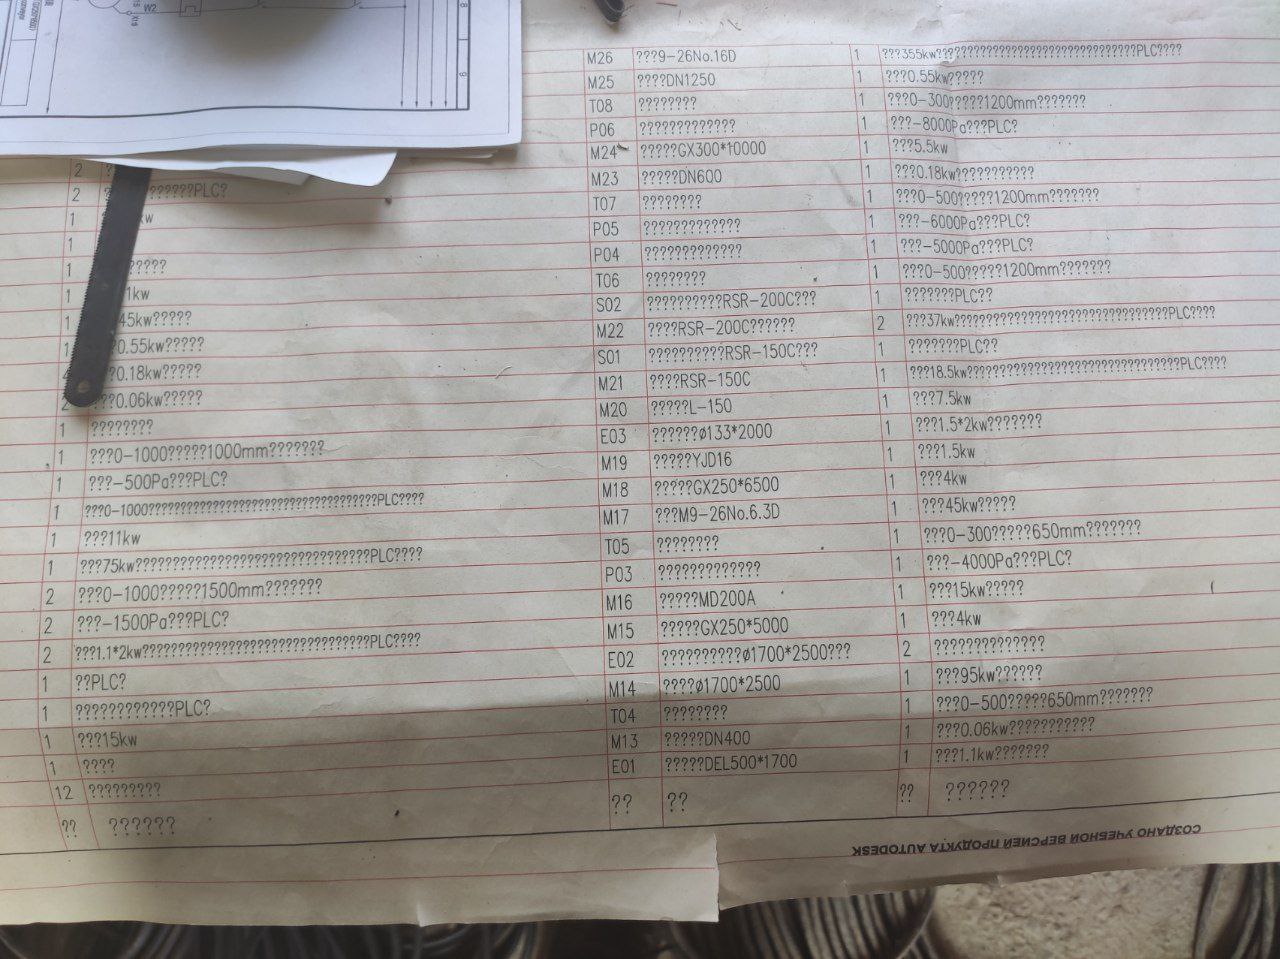 W2
M26 ???9-26No.16D 1 ???355kw????????????????????????????PLC????
M25 ????DN1250 1 ???0.55kw?????
T08 ???????? 1 ???0-300?????1200mm???????
P06 ????????????? 1 ???-8000Pa???PLC?
M24 ?????GX300*10000 1 ???5.5kw
M23 ?????DN600 1 ???0.18kw???????????
T07 ???????? 1 ???0-500?????1200mm???????
P05 ????????????? 1 ???-6000Pa???PLC?
P04 ????????????? 1 ???-5000Pa???PLC?
T06 ???????? 1 ???0-500?????1200mm???????
S02 ??????????RSR-200C??? 1 ???????PLC??
M22 ????RSR-200C?????? 2 ???37kw??????????????????????????????PLC????
S01 ??????????RSR-150C??? 1 ???????PLC??
M21 ????RSR-150C 1 ???18.5kw??????????????????????????????PLC????
M20 ?????L-150 1 ???7.5kw
E03 ??????ø133*2000 1 ???1.5*2kw???????
M19 ?????YJD16 1 ???1.5kw
M18 ?????GX250*6500 1 ???4kw
M17 ???M9-26No.6.3D 1 ???45kw?????
T05 ???????? 1 ???0-300?????650mm???????
P03 ????????????? 1 ???-4000Pa???PLC?
M16 ?????MD200A 1 ???15kw?????
M15 ?????GX250*5000 1 ???4kw
E02 ??????????ø1700*2500??? 2 ??????????????
M14 ????ø1700*2500 1 ???95kw??????
T04 ???????? 1 ???0-500?????650mm???????
M13 ?????DN400 1 ???0.06kw???????????
E01 ?????DEL500*1700 1 ???1.1kw???????
?? ?? ?? ??????
2
2 ??????PLC?
1 kw
1
1 ?????
1 1kw
1 45kw?????
1 ?0.55kw?????
??0.18kw?????
2 ??0.06kw?????
1 ????????
1 ???0-1000?????1000mm???????
1 ???-500Pa???PLC?
1 ???0-1000??????????????????????????????????PLC????
1 ???11kw
1 ???75kw?????????????????????????????????PLC????
2 ???0-1000?????1500mm???????
2 ???-1500Pa???PLC?
2 ???1.1*2kw?????????????????????????????????PLC????
1 ??PLC?
1 ????????????PLC?
1 ???15kw
1 ????
12 ?????????
?? ??????
СОЗДАНО УЧЕБНОЙ ВЕРСИЕЙ ПРОДУКТА AUTODESK